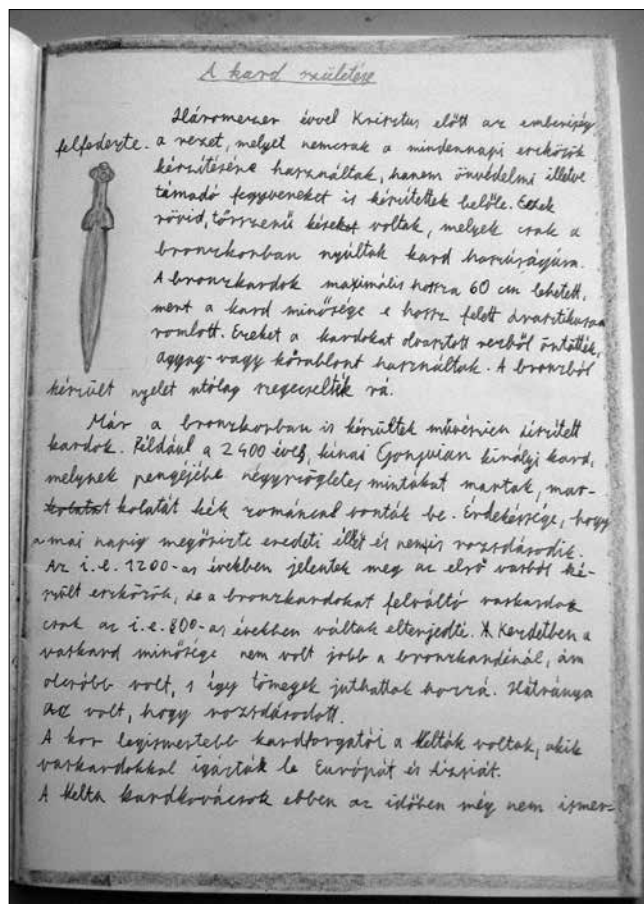 A kard születése
Háromezer évvel Krisztus előtt az emberiség
felfedezte a rezet, melyet nemcsak a mindennapi eszközök
készítésére használtak, hanem önvédelmi illetve
támadó fegyvereket is készítettek belőle. Ezek
rövid, tőrszerű kések voltak, melyek csak a
bronzkorban nyúltak kard hosszúságúra.
A bronzkardok maximális hossza 60 cm lehetett,
mert a kard minősége e hossz felett drasztikusan
romlott. Ezeket a kardokat olvasztott rézből öntötték,
agyag- vagy kősablont használtak. A bronzból
készült nyelet utólag szegecselték rá.
Már a bronzkorban is készültek művészien díszített
kardok. Például a 2400 éves, kínai Gonguian királyi kard,
melynek pengéjébe négyszögletes mintákat martak, mar-
kolatát kék zománccal vonták be. Érdekessége, hogy
a mai napig megőrizte eredeti élét és nem is rozsdásodik.
Az i.e. 1200-as években jelentek meg az első vasból ké-
szült eszközök, de a bronzkardokat felváltó vaskardok
csak az i.e. 800-as években váltak elterjedtté. Kezdetben a
vaskard minősége nem volt jobb a bronzkardénál, ám
olcsóbb volt, s így tömegek juthattak hozzá. Hátránya
az volt, hogy rozsdásodott.
A kor legismertebb kardforgatói a kelták voltak, akik
vaskardokkal igázták le Európát és Ázsiát.
A kelta kardkovácsok ebben az időben még nem ismer-